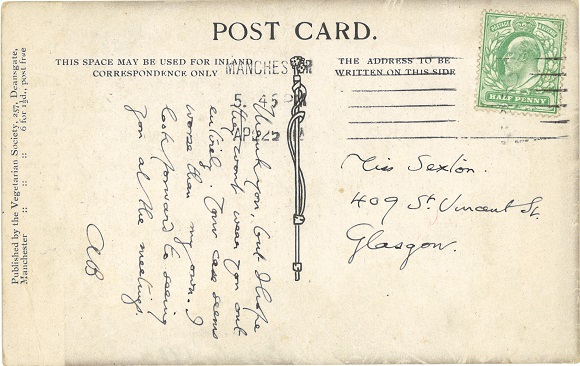 POST CARD.
THIS SPACE MAY BE USED FOR INLAND
CORRESPONDENCE ONLY
THE ADDRESS TO BE
WRITTEN ON THIS SIDE
MANCHESTER
5. 45 PM
AP 25
HALF PENNY
Thank you, but I hope
they won't wear you out
entirely. Your case seems
worse than my own. I
look forward to seeing
you at the meeting.
AB
Miss Sexton.
409 St. Vincent St.
Glasgow.
Published by the Vegetarian Society, 257, Deansgate,
Manchester :: :: :: 6 for 1½d., post free